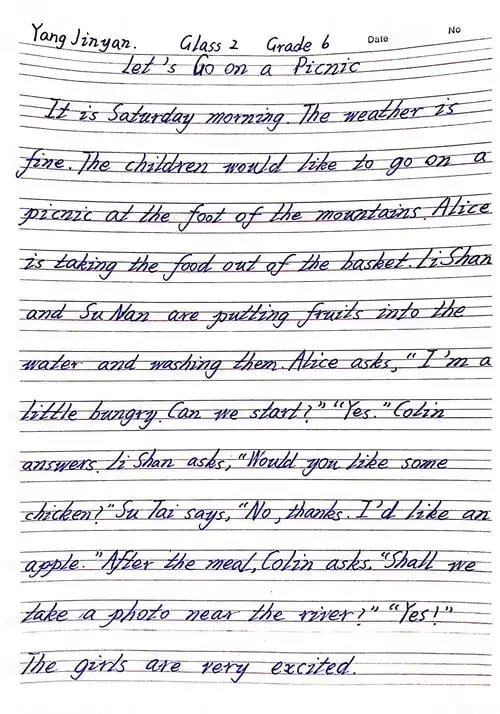 Yang Jinyan. Glass 2 Grade 6 Date No
Let's Go on a Picnic
It is Saturday morning. The weather is
fine. The children would like to go on a
picnic at the foot of the mountains. Alice
is taking the food out of the basket. Li Shan
and Su Nan are putting fruits into the
water and washing them. Alice asks, "I'm a
little bungry. Can we start?" "Yes." Colin
answers. Li Shan asks, "Would you like some
chicken?" Su Tai says, "No, thanks. I'd like an
apple." After the meal, Colin asks. "Shall we
take a photo near the river?" "Yes!"
The girls are very excited.